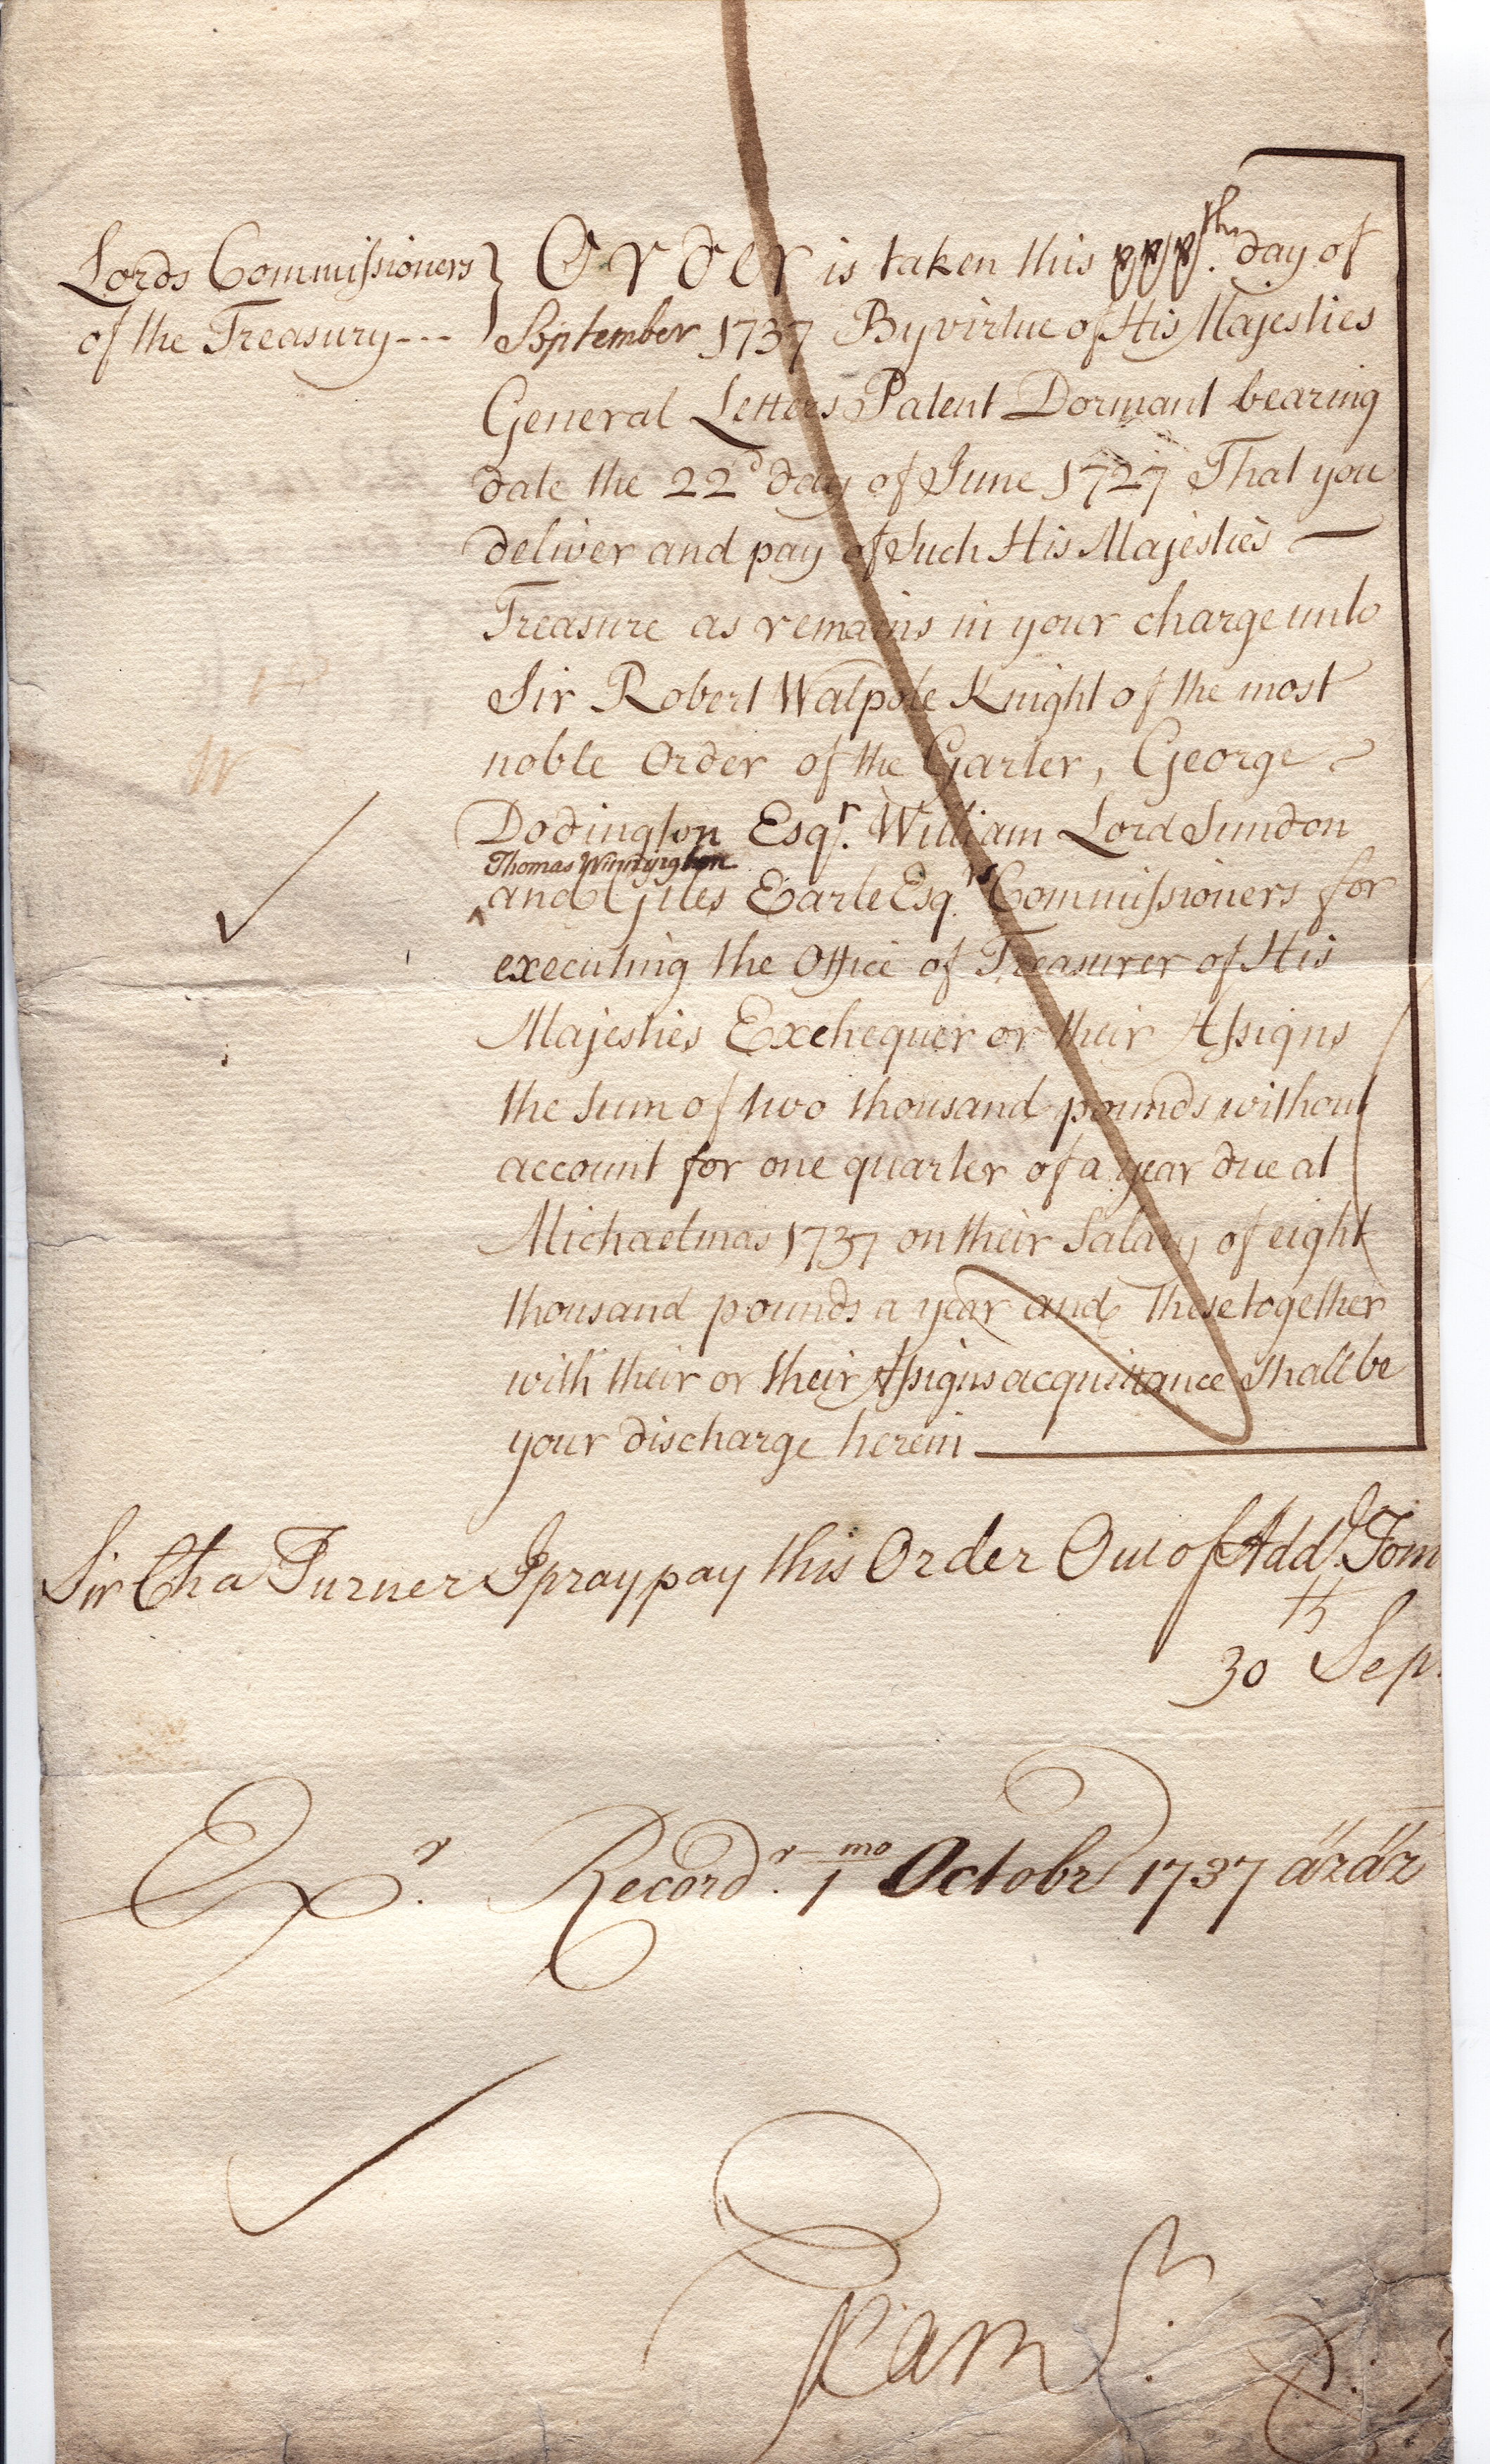 Lords Commissioners
of the Treasury---
Order is taken this xxxth. day of
September 1737 By virtue of His Majesties
General Letters Patent Dormant bearing
date the 22d day of June 1727 That you
deliver and pay of Such His Majesties
Treasure as remains in your charge unto
Sir Robert Walpole Knight of the most
noble Order of the Garter, George
Dodington Esqr. William Lord Sundon
Thomas Winnington
and Giles Earle Esqrs. Commissioners for
executing the Office of Treasurer of His
Majesties Exchequer or their Assigns
the Sum of two thousand pounds without
account for one quarter of a year due at
Michaelmas 1737 on their Salary of eight
thousand pounds a year and These together
with their or their Assigns acquittance Shall be
your discharge herein
Sir Cha Turner I pray pay this Order Out of Addl. Tom
30th Sep.
Exr. Recordr. 1mo Octobr 1737